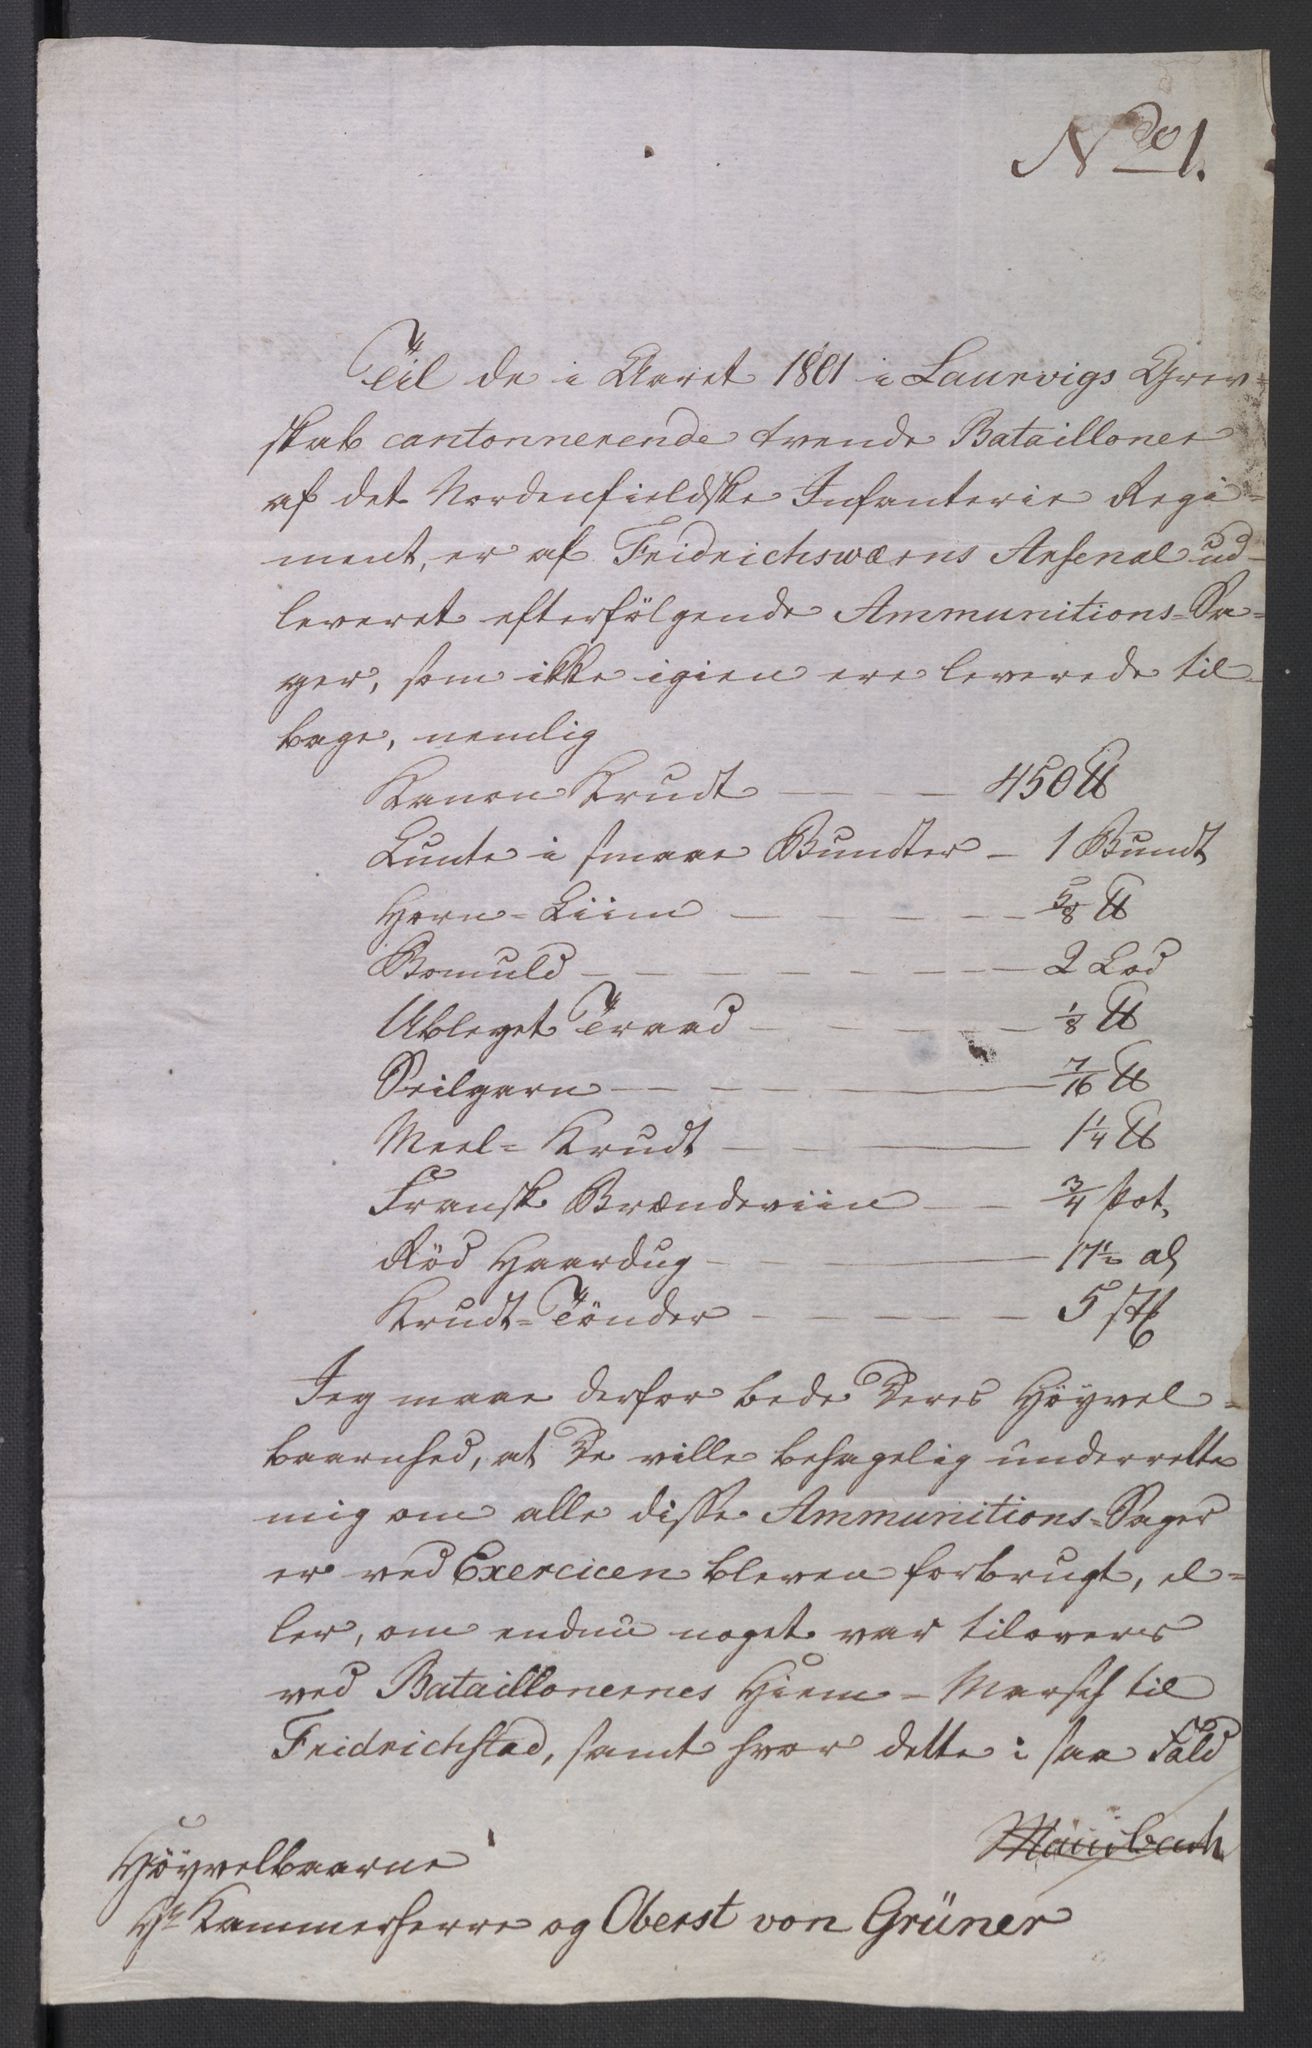 No 1.
Til de i Aaret 1801 i Laurvigs Grev-
skab cantonnerende tvende Batailloner
af det Nordenfieldske Infanterie Regi-
ment, er af Fridrichswærns Arsenal ud-
leveret efterfölgende Ammunitions-Sa-
ger, som ikke igien ere leverede til-
bage, nemlig
Kanon Krudt — — — 450 ℔
Lunte i smaae Bundter — 1 Bundt
Horn-Liim — — — — 5/8 ℔
Bomuld — — — — — — — 2 Lod
Ubleget Traad — — — — — 1/8 ℔
Seilgarn — — — — 7/16 ℔
Meel-Krudt — — — 1 1/4 ℔
Fransk Brændeviin — — 3/4 Pot,
Röd Haardug — — — — 17 1/2 al
Krudt-Tönder — — — — — 5 St
Jeg maae derfor bede Deres Höyvel-
baarnhed, at De ville behagelig underrette
mig om alle disse Ammunitions-Sager
er ved Exercicen bleven forbrugt, el-
ler, om endnu noget var tilovers
ved Bataillonernes Hiem-Marsch til
Fridrichstad, samt hvor dette i saa Fald
Höyvelbaarne
Hr Kammerherre og Oberst von Grüner